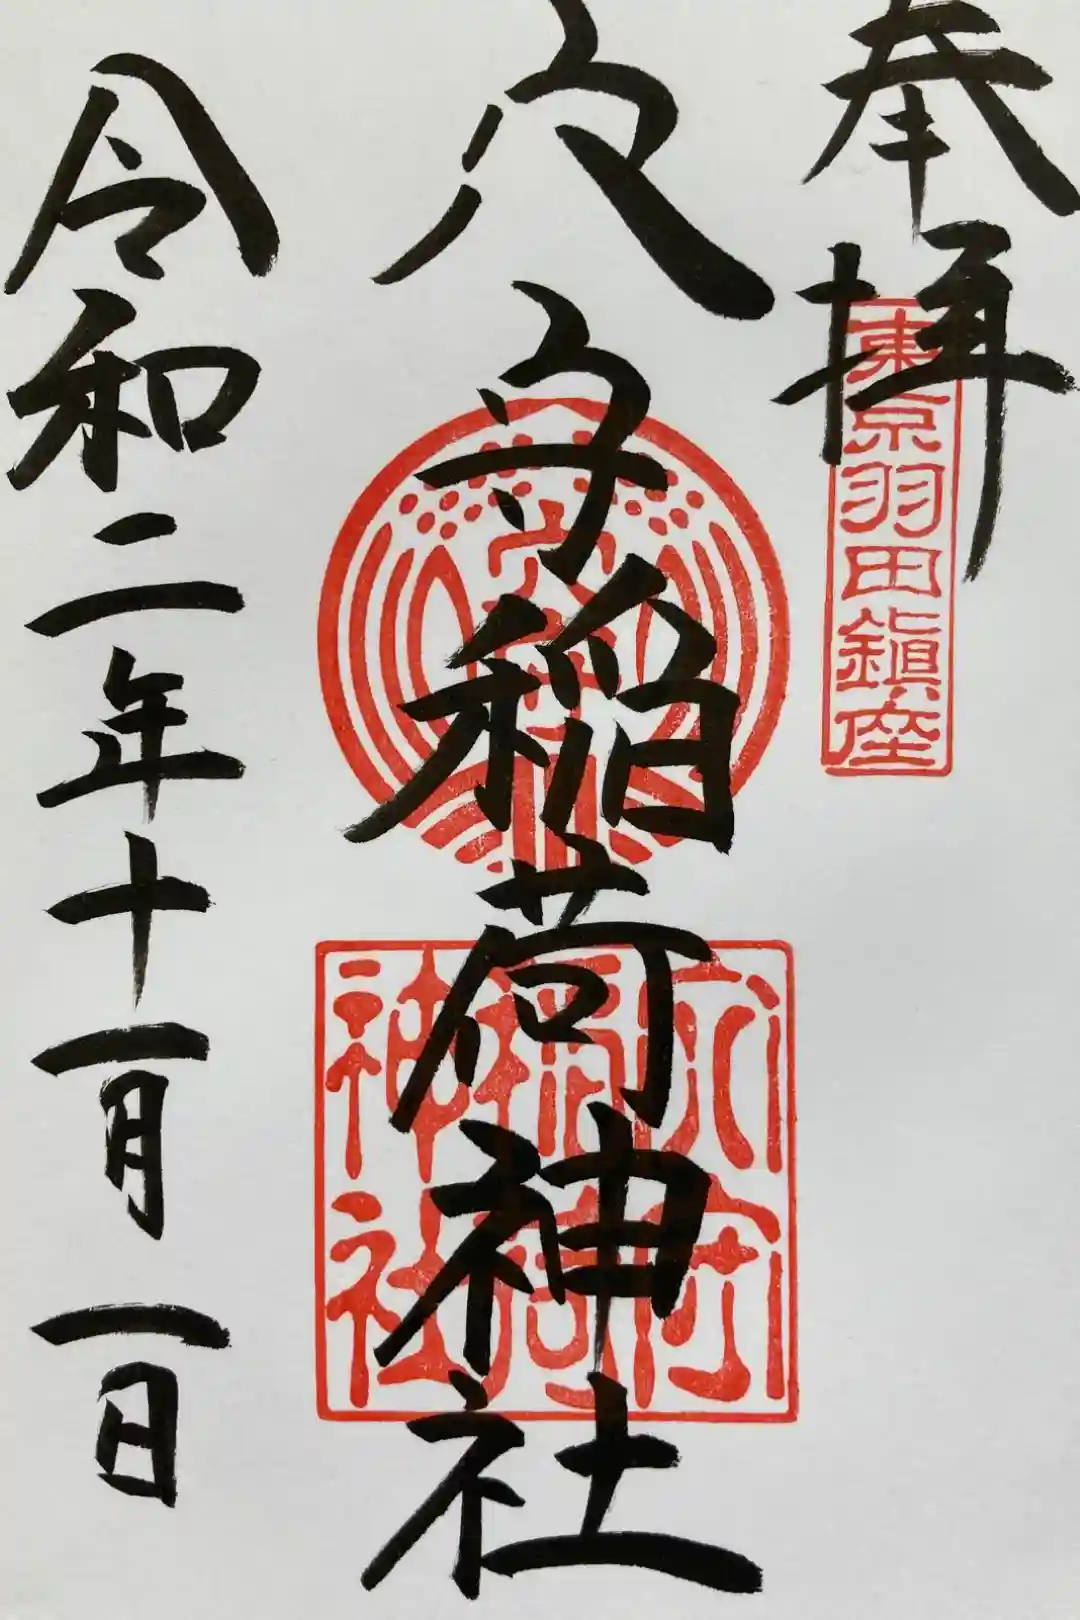 奉拝
東京羽田鎮座
穴守稲荷神社
穴守
稲荷
神社
令和二年十一月一日